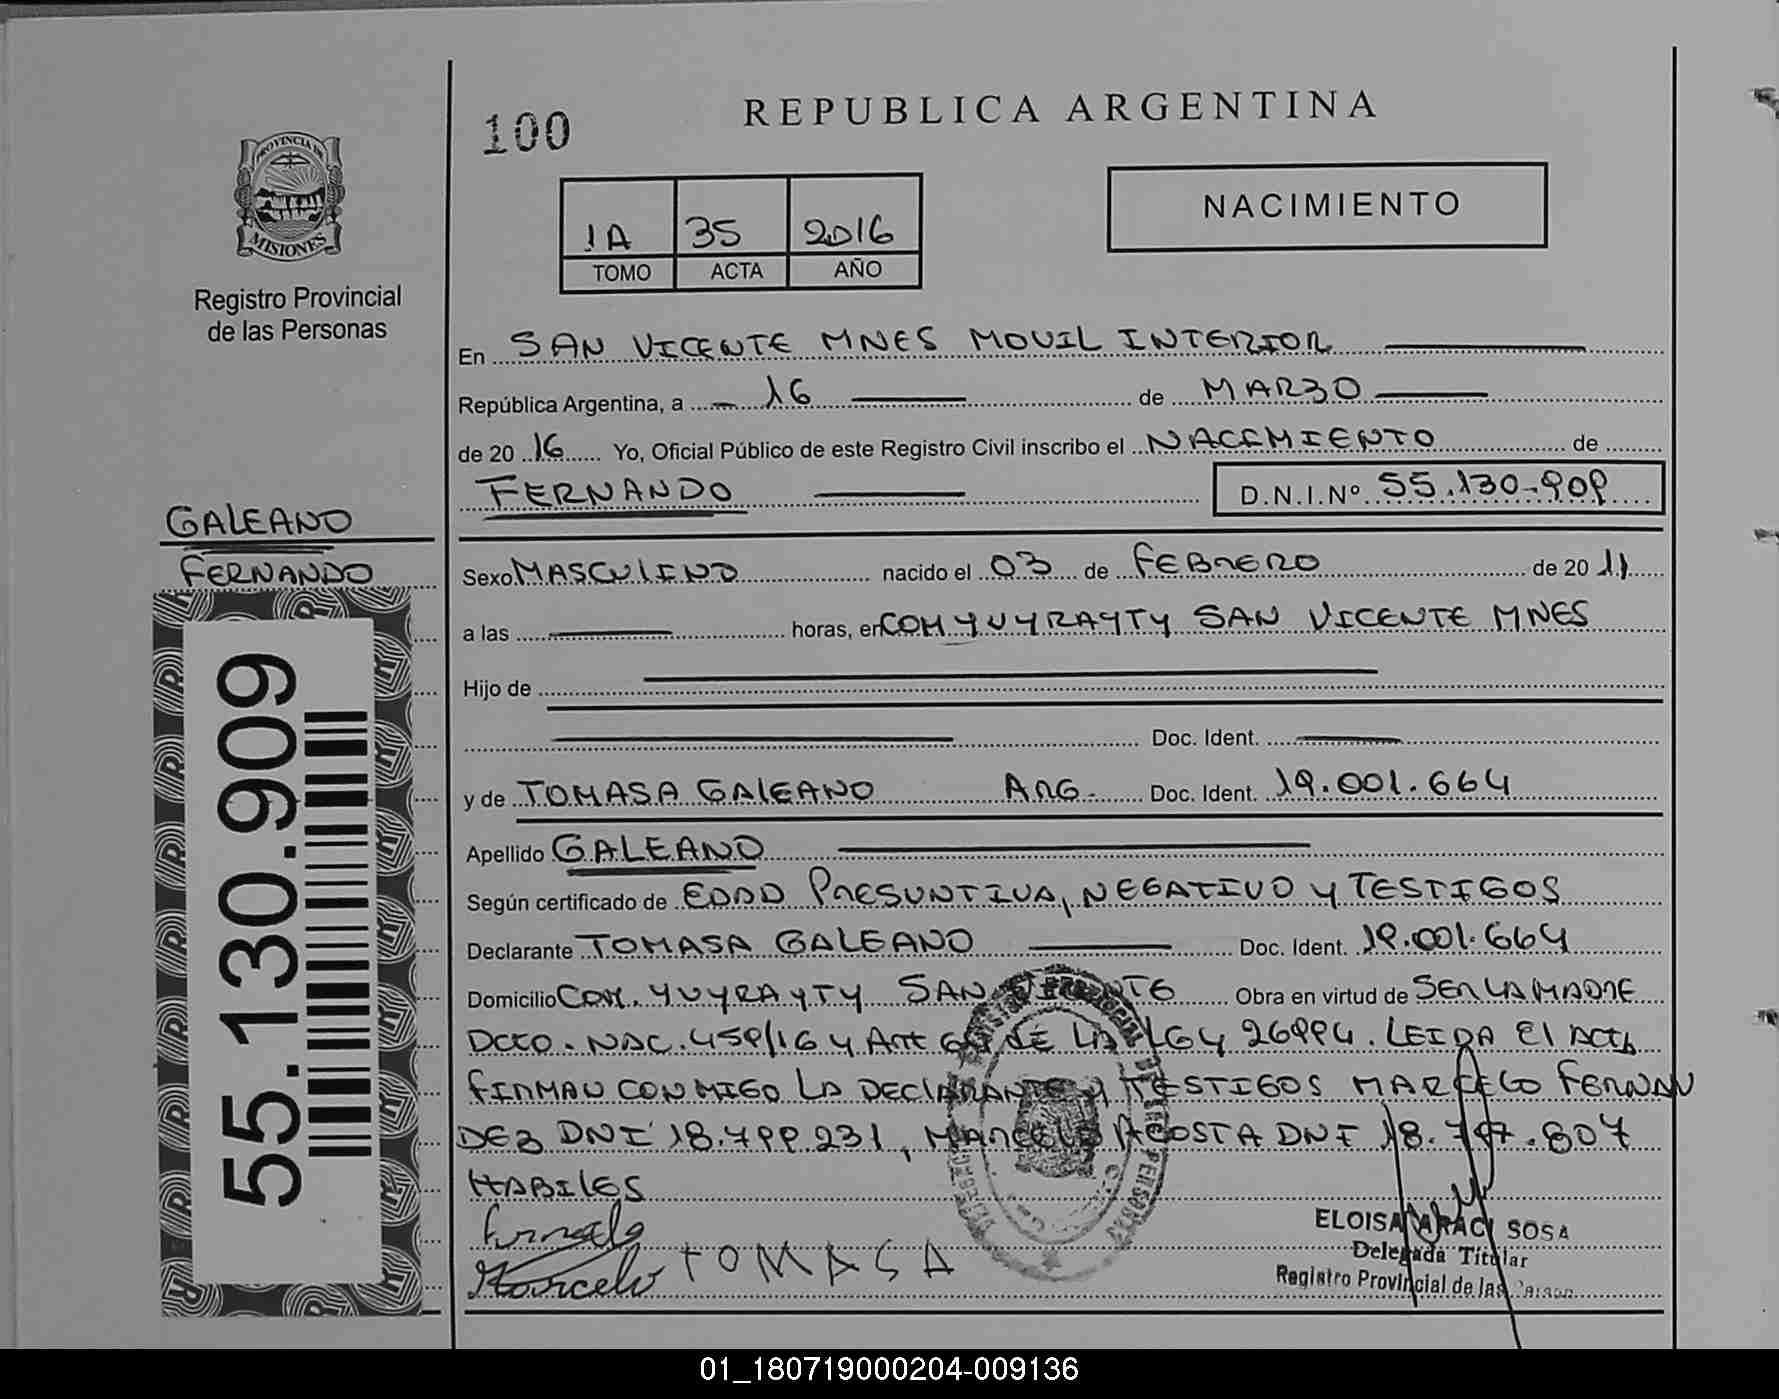 100
REPUBLICA ARGENTINA
PROVINCIA DE
MISIONES
Registro Provincial
de las Personas
NACIMIENTO
1A 35 2016
TOMO ACTA AÑO
En SAN VICENTE MNES MOVIL INTERIOR
República Argentina, a 16 de MARZO
de 20 16 Yo, Oficial Público de este Registro Civil inscribo el NACIMIENTO de
FERNANDO D.N.I.Nº 55.130.909
GALEANO
FERNANDO
55.130.909
Sexo MASCULINO nacido el 03 de FEBRERO de 20 11
a las horas, en COM YVYRAYTY SAN VICENTE MNES
Hijo de
Doc. Ident.
y de TOMASA GALEANO ARG. Doc. Ident. 19.001.664
Apellido GALEANO
Según certificado de EDAD PRESUNTIVA, NEGATIVO Y TESTIGOS
Declarante TOMASA GALEANO Doc. Ident. 19.001.664
Domicilio COM. YVYRAYTY SAN VICENTE Obra en virtud de SER LA MADRE
DCTO. NAC. 459/16 Y ART DE LA LEY 26994. LEIDA El ACTA
FIRMAN CONMIGO LA DECLARANTE Y TESTIGOS MARCELO FERNAN
DEZ DNI 18.799.231, MARCELO ACOSTA DNI 807
HABILES
Marcelo TOMASA
ELOISA ARACI SOSA
Delegada Titular
Registro Provincial de las
01_180719000204-009136